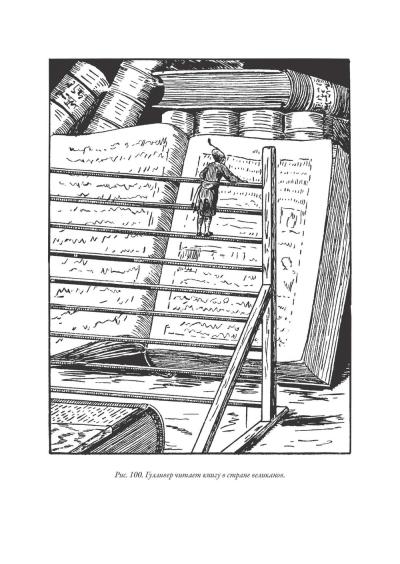 Рис. 100. Гулливер читает книгу в стране великанов.